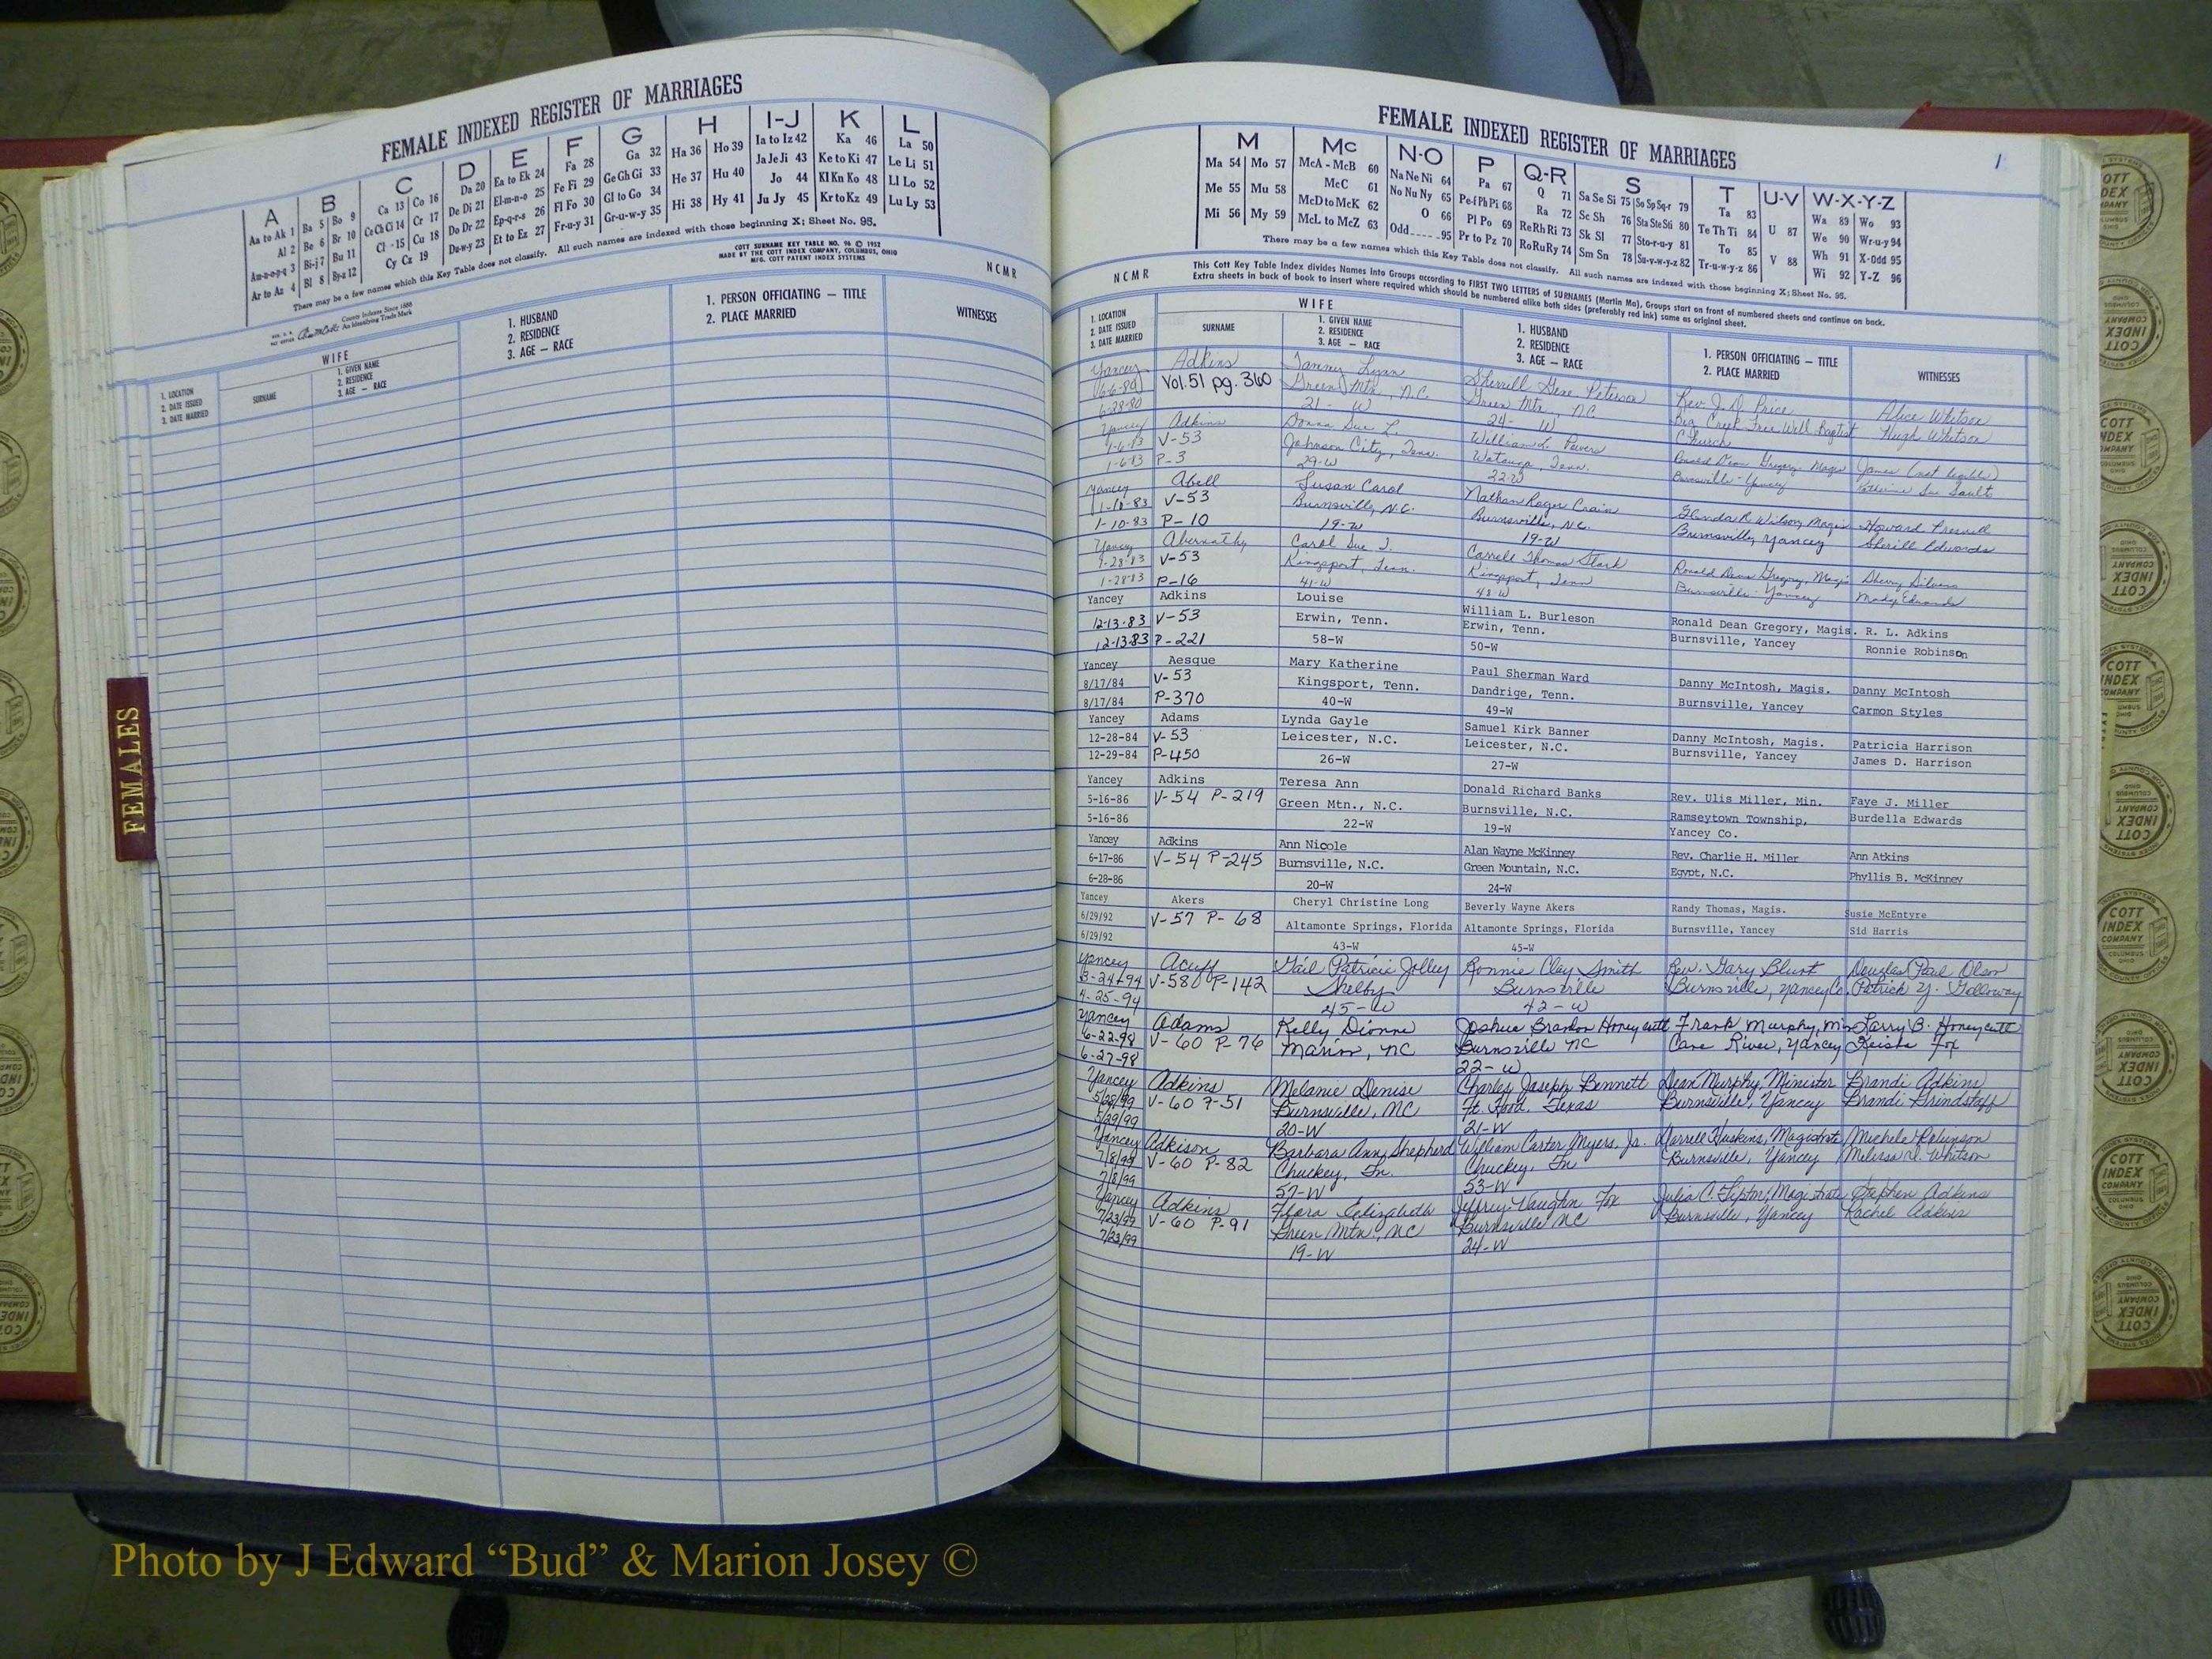 FEMALE INDEXED REGISTER OF MARRIAGES
A B C D E F G H I-J K L
Aa to Ak 1 Ba 5 Bo 9 Ca 13 Co 16 Da 20 Ea to Ek 24 Fa 28 Ga 32 Ha 36 Ho 39 Ia to Iz 42 Ka 46 La 50
Al 2 Be 6 Br 10 Ce Ch Ci 14 Cr 17 De Di 21 El-m-n-o 25 Fe Fi 29 Ge Gh Gi 33 He 37 Hu 40 Ja Je Ji 43 Ke to Ki 47 Le Li 51
Am-n-o-p-q 3 Bi-j 7 Bu 11 Cl - 15 Cu 18 Do Dr 22 Ep-q-r-s 26 Fl Fo 30 Gl to Go 34 Hi 38 Hy 41 Jo 44 Kl Kn Ko 48 Ll Lo 52
Ar to Az 4 Bl 8 By-z 12 Cy Cz 19 Du-w-y 23 Et to Ez 27 Fr-u-y 31 Gr-u-w-y 35 Ju Jy 45 Kr to Kz 49 Lu Ly 53
There may be a few names which this Key Table does not classify. All such names are indexed with those beginning X; Sheet No. 95.
COTT SURNAME KEY TABLE NO. 96 © 1952
MADE BY THE COTT INDEX COMPANY, COLUMBUS, OHIO
MFG. COTT PATENT INDEX SYSTEMS
NCMR
County Indexes Since 1888
An Identifying Trade Mark
1. LOCATION
2. DATE ISSUED
3. DATE MARRIED
WIFE
SURNAME
1. GIVEN NAME
2. RESIDENCE
3. AGE — RACE
1. HUSBAND
2. RESIDENCE
3. AGE — RACE
1. PERSON OFFICIATING — TITLE
2. PLACE MARRIED
WITNESSES
FEMALES
FEMALE INDEXED REGISTER OF MARRIAGES
1
M Mc N-O P Q-R S T U-V W-X-Y-Z
Ma 54 Mo 57 McA - McB 60 Na Ne Ni 64 Pa 67 Q 71 Sa Se Si 75 So Sp Sq-r 79 Ta 83 U 87 Wa 89 Wo 93
Me 55 Mu 58 McC 61 No Nu Ny 65 Pe-f Ph Pi 68 Ra 72 Sc Sh 76 Sta Ste Sti 80 Te Th Ti 84 We 90 Wr-u-y 94
Mi 56 My 59 McD to McK 62 O 66 Pl Po 69 Re Rh Ri 73 Sk Sl 77 Sto-r-u-y 81 To 85 V 88 Wh 91 X-Odd 95
McL to McZ 63 Odd - - - - - 95 Pr to Pz 70 Ro Ru Ry 74 Sm Sn 78 Su-v-w-y-z 82 Tr-u-w-y-z 86 Wi 92 Y-Z 96
There may be a few names which this Key Table does not classify. All such names are indexed with those beginning X; Sheet No. 95.
NCMR
This Cott Key Table Index divides Names into Groups according to FIRST TWO LETTERS of SURNAMES (Martin Ma), Groups start on front of numbered sheets and continue on back.
Extra sheets in back of book to insert where required which should be numbered alike both sides (preferably red ink) same as original sheet.
1. LOCATION
2. DATE ISSUED
3. DATE MARRIED
WIFE
SURNAME
1. GIVEN NAME
2. RESIDENCE
3. AGE — RACE
1. HUSBAND
2. RESIDENCE
3. AGE — RACE
1. PERSON OFFICIATING — TITLE
2. PLACE MARRIED
WITNESSES
Yancey Adkins Tammy Lynn Sherrill Gene Peterson Rev. J. D. Price Alice Whitson
6-6-80 Vol. 51 pg. 360 Green Mtn., N.C. Green Mtn., NC Big Creek Free Will Baptist Hugh Whitson
6-28-80 21- W 24- W Church
Yancey Adkins Donna Sue L. William L. Powers Ronald Dean Gregory Magis James (not legible)
1-6-83 V-53 Johnson City, Tenn. Watauga, Tenn. Burnsville - Yancey Katherine Sue Sault
1-6-83 P-3 29-W 22-W
Yancey Abell Susan Carol Nathan Roger Crain Glenda R. Wilson, Magis Howard Presnell
1-10-83 V-53 Burnsville, N.C. Burnsville, N.C. Burnsville, Yancey Sherill Edwards
1-10-83 P-10 19-W 19-W
Yancey Abernathy Carol Sue J. Carrell Thomas Stark Ronald Dean Gregory, Magis Sherry Silvers
1-28-83 V-53 Kingsport, Tenn. Kingsport, Tenn Burnsville - Yancey Mady Edwards
1-28-83 P-16 41-W 48-W
Yancey Adkins Louise William L. Burleson Ronald Dean Gregory, Magis. R. L. Adkins
12-13-83 V-53 Erwin, Tenn. Erwin, Tenn. Burnsville, Yancey Ronnie Robinson
12-13-83 P-221 58-W 50-W
Yancey Aesque Mary Katherine Paul Sherman Ward Danny McIntosh, Magis. Danny McIntosh
8/17/84 V-53 Kingsport, Tenn. Dandrige, Tenn. Burnsville, Yancey Carmon Styles
8/17/84 P-370 40-W 49-W
Yancey Adams Lynda Gayle Samuel Kirk Banner Danny McIntosh, Magis. Patricia Harrison
12-28-84 V-53 Leicester, N.C. Leicester, N.C. Burnsville, Yancey James D. Harrison
12-29-84 P-450 26-W 27-W
Yancey Adkins Teresa Ann Donald Richard Banks Rev. Ulis Miller, Min. Faye J. Miller
5-16-86 V-54 P-219 Green Mtn., N.C. Burnsville, N.C. Ramseytown Township, Burdella Edwards
5-16-86 22-W 19-W Yancey Co.
Yancey Adkins Ann Nicole Alan Wayne McKinney Rev. Charlie H. Miller Ann Atkins
6-17-86 V-54 P-245 Burnsville, N.C. Green Mountain, N.C. Egypt, N.C. Phyllis B. McKinney
6-28-86 20-W 24-W
Yancey Akers Cheryl Christine Long Beverly Wayne Akers Randy Thomas, Magis. Susie McEntyre
6/29/92 V-57 P-68 Altamonte Springs, Florida Altamonte Springs, Florida Burnsville, Yancey Sid Harris
6/29/92 43-W 45-W
Yancey Acuff Gail Patricia Jolley Ronnie Clay Smith Rev. Gary Blunt Douglas Paul Olson
3-24-94 V-58 P-142 Shelby Burnsville Burnsville, Yancey Co. Patrick Y. Galloway
4-25-94 45-W 42-W
Yancey Adams Kelly Dionne Joshua Brandon Honeycutt Frank Murphy, Min Larry B. Honeycutt
6-22-98 V-60 P-76 Marion, NC Burnsville NC Cane River, Yancey Keisha Fox
6-27-98 22-W
Yancey Adkins Melanie Denise Charles Joseph Bennett Dean Murphy, Minister Brandi Adkins
5/28/99 V-60 P-51 Burnsville, NC Ft. Hood, Texas Burnsville, Yancey Brandi Grindstaff
5/29/99 20-W 21-W
Yancey Adkison Barbara Ann Shepherd William Carter Myers, Jr. Darrell Huskins, Magistrate Michele Robinson
7/8/99 V-60 P-82 Chuckey, Tn. Chuckey, Tn Burnsville, Yancey Melissa D. Whitson
7/8/99 57-W 53-W
Yancey Adkins Flora Elizabeth Jeffrey Vaughn Fox Julia C. Tipton, Magistrate Stephen Adkins
7/23/99 V-60 P-91 Green Mtn., NC Burnsville NC Burnsville, Yancey Rachel Adkins
7/23/99 19-W 24-W
COTT INDEX COMPANY
COLUMBUS OHIO
Photo by J Edward “Bud” & Marion Josey ©